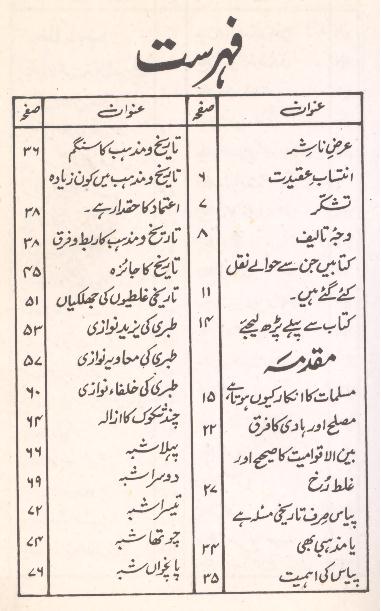 فہرست
عنوان صفحہ
عرضِ ناشر
انتساب عقیدت ۶
تشکر ۷
وجہ تالیف ۸
کتابیں جن سے حوالے نقل
کئے گئے ہیں۔ ۱۱
کتاب سے پہلے پڑھ لیجئے ۱۴
مقدمہ
مسلمات کا انکار کیوں ہوتا ہے ۱۵
مصلح اور ہادی کا فرق ۲۲
بین الاقوامیت کا صحیح اور
غلط رُخ ۲۷
پیاس صرف تاریخی مسئلہ ہے
یا مذہبی بھی ۳۴
پیاس کی اہمیت ۳۵
عنوان صفحہ
تاریخ و مذہب کا سنگم ۳۶
تاریخ و مذہب میں کون زیادہ
اعتماد کا حقدار ہے۔ ۳۸
تاریخ و مذہب کا ربط و فرق ۳۸
تاریخ کا جائزہ ۴۵
تاریخی غلطیوں کی جھلکیاں ۵۱
طبری کی یزید نوازی ۵۳
طبری کی معاویہ نوازی ۵۷
طبری کی خلفاء نوازی ۶۰
چند شکوک کا ازالہ ۶۴
پہلا شبہ ۶۶
دوسرا شبہ ۶۹
تیسرا شبہ ۷۲
چوتھا شبہ ۷۴
پانچواں شبہ ۷۶